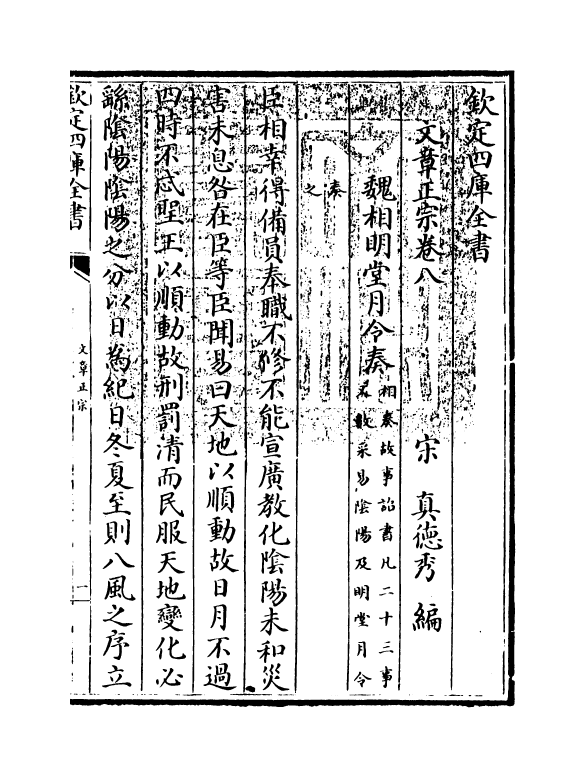 欽定四庫全書
文章正宗卷八
宋 真德秀 編
魏相明堂月令奏
相奏故事詔書凡二十三事
又數采易陰陽及明堂月令
奏
之
臣相幸得備員奉職不修不能宣廣教化陰陽未和災
害未息咎在臣等臣聞易曰天地以順動故日月不過
四時不忒聖王以順動故刑罰清而民服天地變化必
繇陰陽陰陽之分以日為紀日冬夏至則八風之序立
欽定四庫全書
文章正宗
一